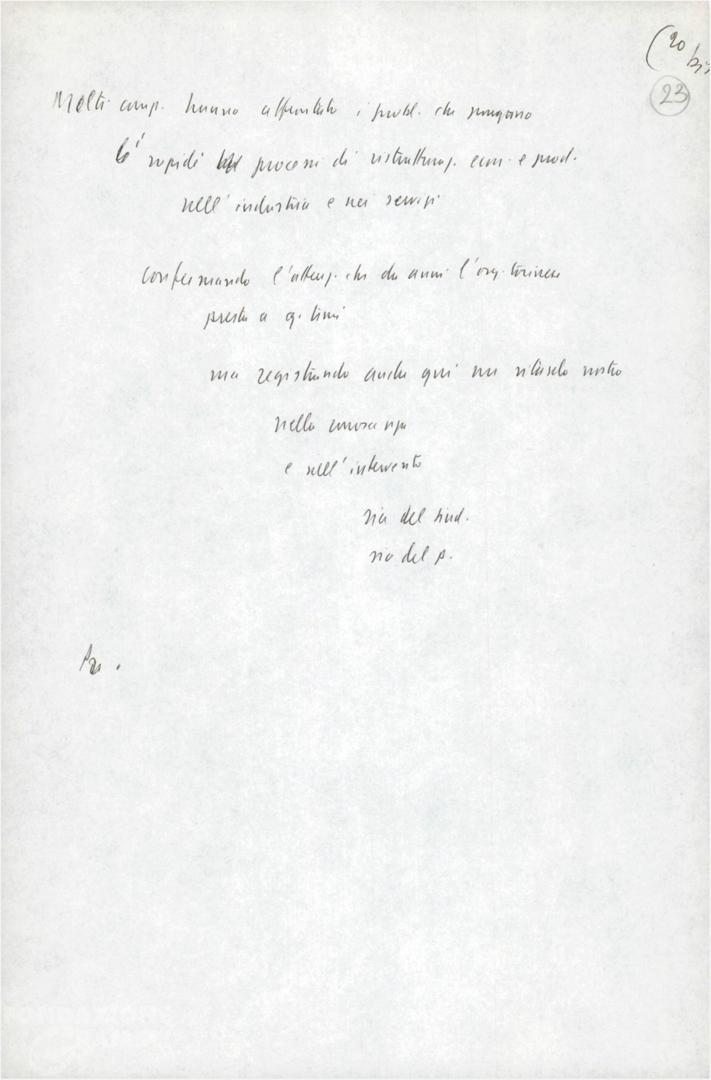 (20 bis
23
Molti comp. hanno affrontato i probl. che pongono
i rapidi processi di ristrutturaz. econ. e prod.
nell'industria e nei servizi
confermando l'attenz. che da anni l'org. torinese
presta a q. temi
ma registrando anche qui un ritardo nostro
nella conoscenza
e nell'intervento
sia del sind.
sia del p.